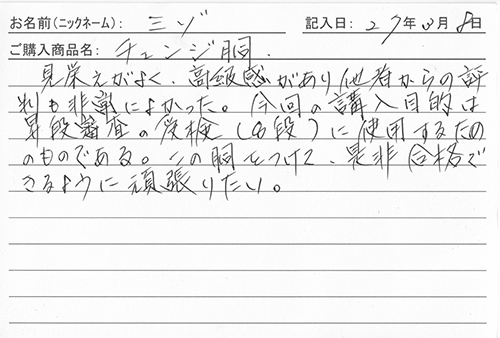 お名前(ニックネーム): ミゾ 記入日: 27年3月8日
ご購入商品名: チェンジ胴.
見栄えがよく、高級感があり他者からの評
判も非常によかった。今回の講入目的は
昇段審査の受検(八段)に使用するため
のものである。この胴をつけて、是非合格で
きるように頑張りたい。